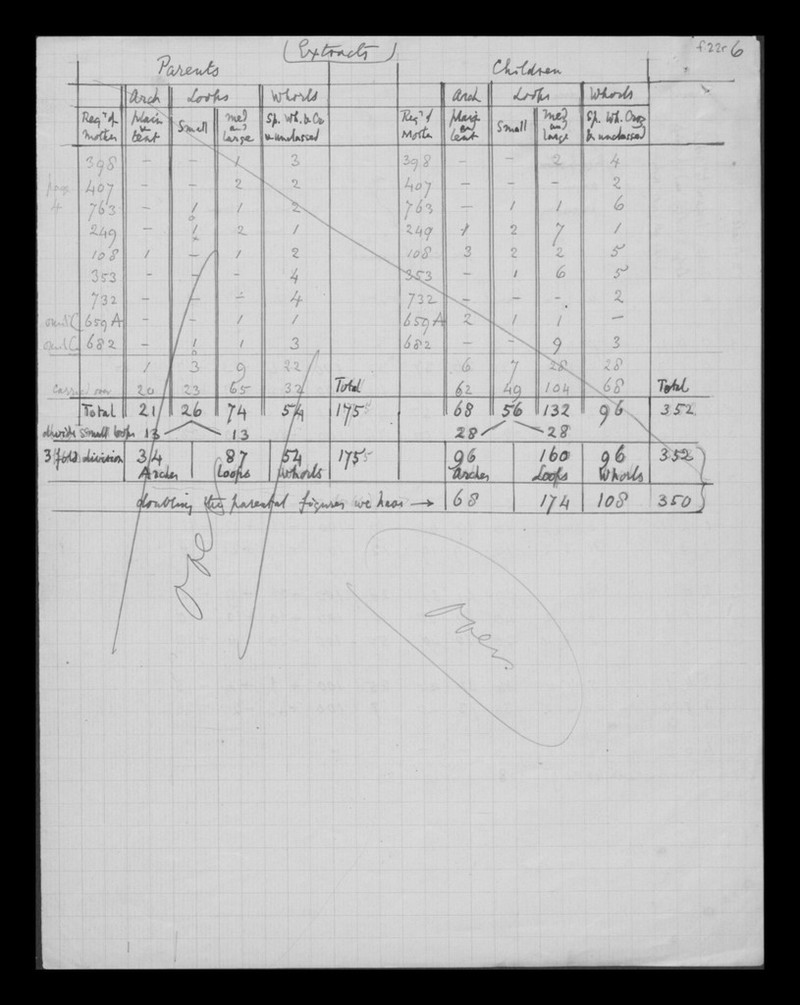 (Extracts)
f22r 6
Parents Children
Arch Loops Whorls Arch Loops Whorls
Reg' of Mother Plain & tent Small med and large Sp. Wh. & Co & unclassed Reg' of Mother Plain and tent Small med and large Sp. Wh. & unclassed
398 – – 1 3 398 – – 2 4
page 407 – – 2 2 407 – – – 2
4 763 – 1 1 2 763 – 1 1 6
249 – 1 2 1 249 1 2 7 1
108 1 – 1 2 108 3 2 2 5
353 – – – 4 353 – 1 6 5
732 – – – 4 732 – – – 2
659A – – 1 1 659A 2 1 1 –
682 – 1 1 3 682 – – 9 3
1 3 9 22 6 7 28 28
carried over 20 23 65 32 Total 62 49 104 68 Total
Total 21 26 74 54 175 68 56 132 96 352
divide small loops 13 13 28 28
3 fold division 34 87 54 175 96 160 96 352
Arches Loops Whorls Arches Loops Whorls
doubling the parental figures we have → 68 174 108 350
over
over